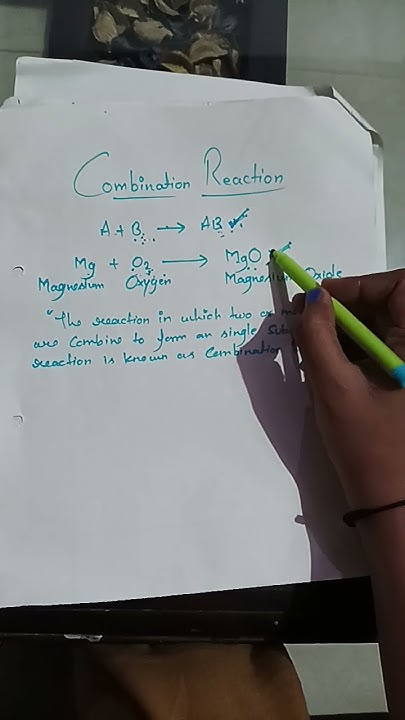 Combination Reaction
A + B → AB
Mg + O2 → MgO
Magnesium Oxygen Magnesium Oxide
"The reaction in which two or
are combine to form an single
reaction is known as Combination